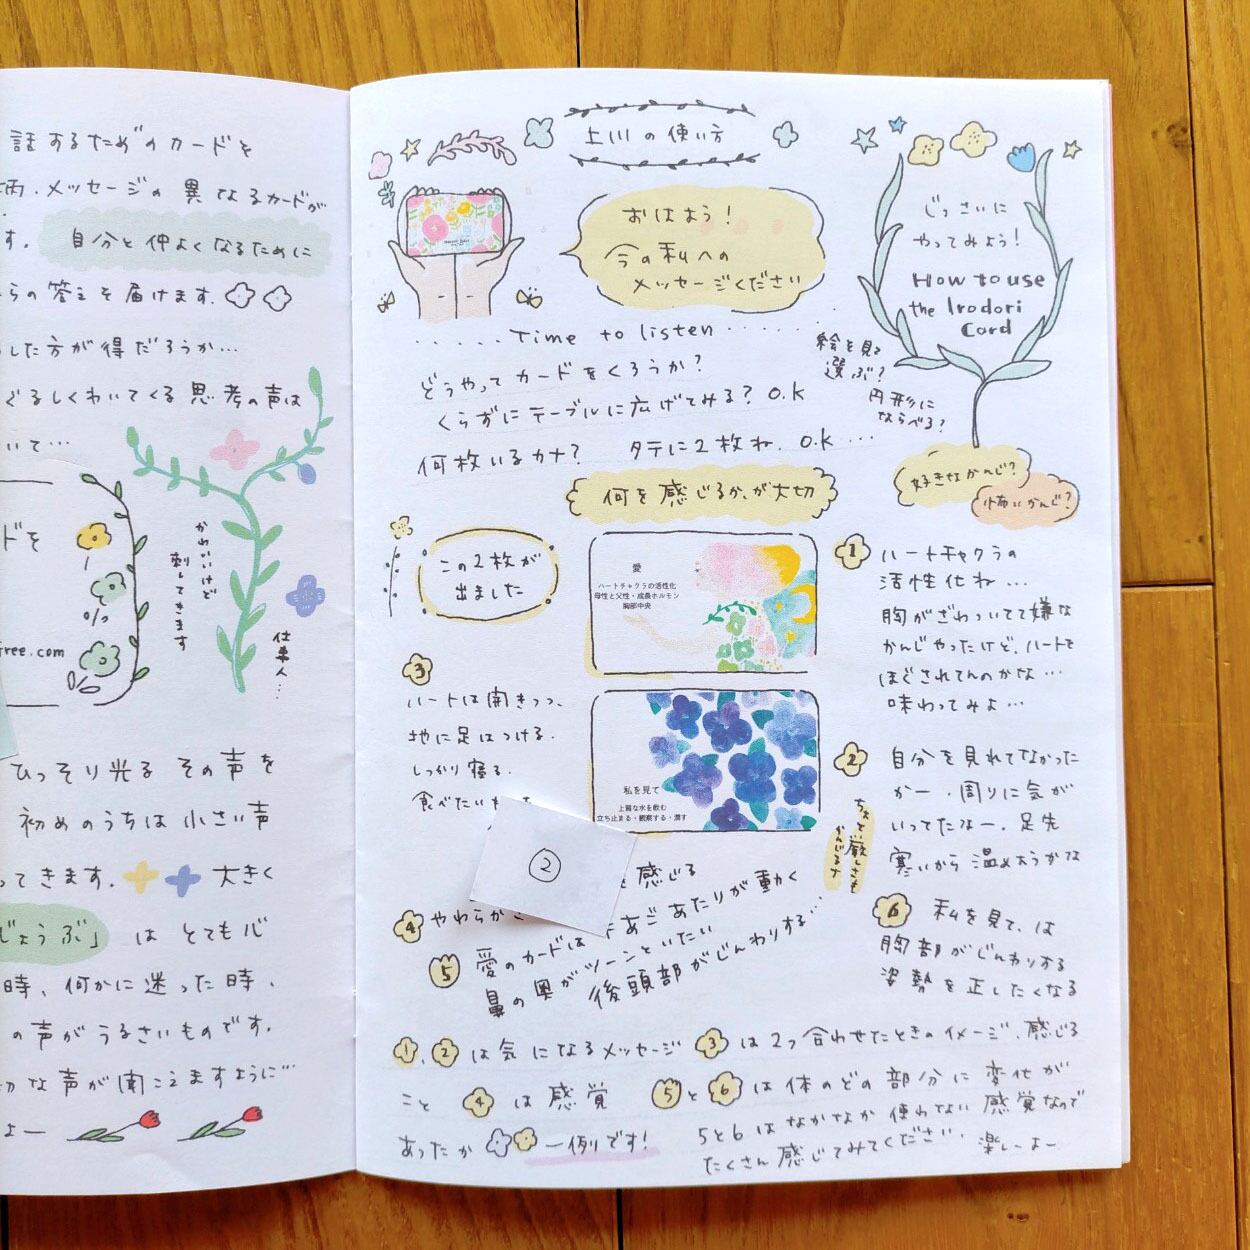 話するためのカードを
柄．メッセージの異なるカードが
す。自分と仲よくなるために
らの答えを届けます．
した方が得だろうか…
ぐるしくわいてくる思考の声は
いて…
かわいいけど
刺してきます
ドを
free.com
仕事人…
ひっそり光るその声を
初めのうちは小さい声
ってきます．大きく
じょうぶ」はとても心
時、何かに迷った時、
の声がうるさいものです．
切な声が聞こえますように…
よー
上川の使い方
おはよう！
今の私への
メッセージください
じっさいに
やってみよう！
How to use
the Irodori
Card
.....Time to listen........
どうやってカードをくろうか？
くらずにテーブルに広げてみる？O.K
何枚いるカナ？ タテに2枚ね．O.K…
絵を見て
選ぶ？
円形に
ならべる？
好きなかんじ？
怖いかんじ？
何を感じるか、が大切
この2枚が
出ました
愛
ハートチャクラの活性化
母性と父性・成長ホルモン
胸部中央
私を見て
上質な水を飲む
立ち止まる・観察する・潤す
1 ハートチャクラの
活性化ね…
胸がざわついてて嫌な
かんじやったけど、ハートを
ほぐされてんのかな…
味わってみよ…
2 自分を見れてなかった
かー．周りに気が
いってたなー．足先
寒いから温めようかな
ちょっと厳しさも
かんじるナ
3
ハートは開きつつ、
地に足はつける．
しっかり寝る．
食べたい
②
4 やわらかさ を感じる
5 愛のカードは あごあたりが動く
鼻の奥がツーンといたい
後頭部がじんわりする…
6 私を見て、は
胸部がじんわりする
姿勢を正したくなる
1、2は気になるメッセージ 3は2つ合わせたときのイメージ、感じる
こと 4は感覚 5と6は体のどの部分に変化が
あったか 一例です！
5と6はなかなか使わない感覚なので
たくさん感じてみてください．楽しーよー